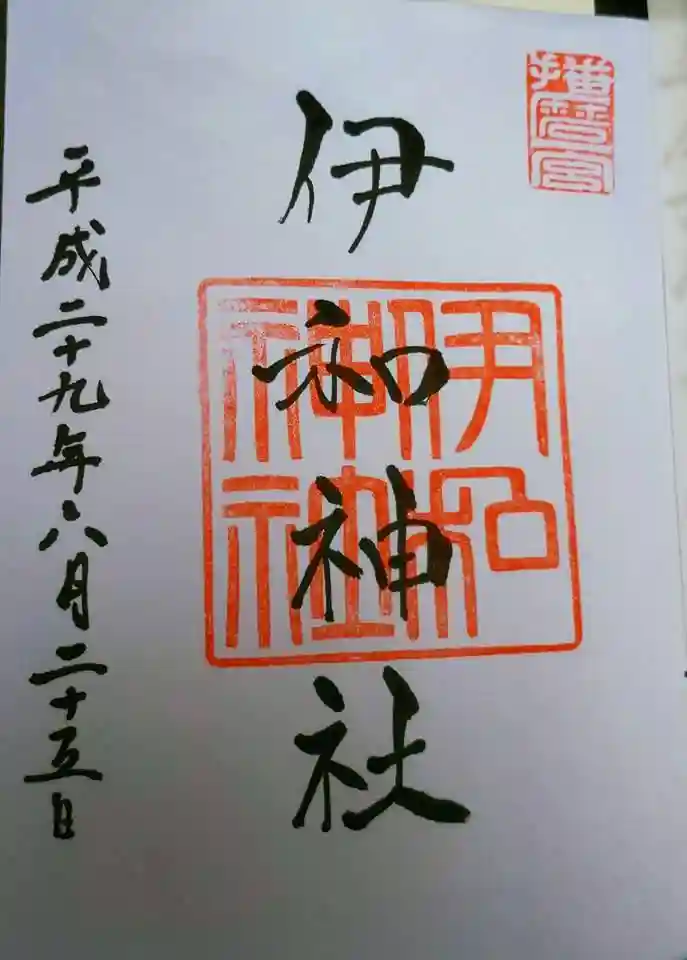 播磨一宮
伊和神社
伊和
神社
平成二十九年六月二十五日